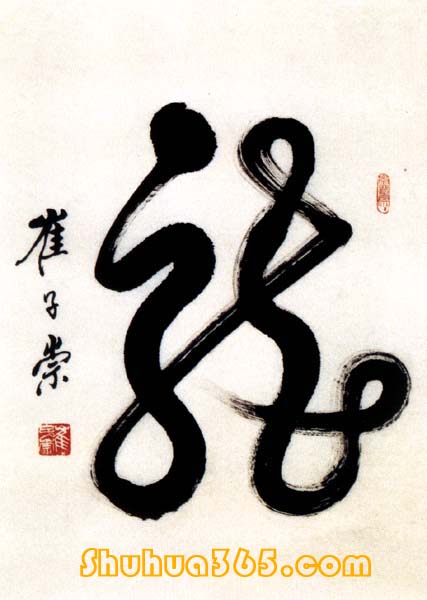 龙
崔子崇
Shuhua365.com